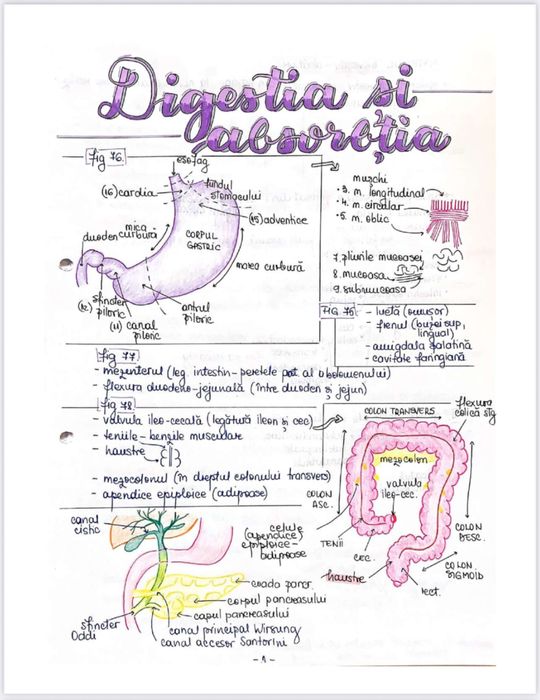 Digestia și
absorbția
Fig 76.
esofag
(16) cardia
fundul
stomacului
(15) adventice
mica
curbură
duoden
CORPUL
GASTRIC
marea curbură
sfincter
piloric
(11) canal
piloric
antrul
piloric
mușchi
• 3. m. longitudinal
• 4. m. circular
• 5. m. oblic
7. pliurile mucoasei
8. mucoasa
9. submucoasa
FIG 75
- luetă (omușor)
- frenul (buzei sup,
lingual)
- amigdala palatină
- cavitate faringiană
fig 77
- mezenterul (leg. intestin-peretele pot. al abdomenului)
- flexura duodeno-jejunală (între duoden și jejun)
fig 78
- valvula ileo-cecală (legătură ileon și cec)
- teniile - benzile musculare
- haustre
- mezocolonul (în dreptul colonului transvers)
- apendice epiploice (adipoase)
flexura
colica stg
COLON TRANSVERS
mezocolon
valvula
ileo-cec.
COLON
ASC.
TENII
cec.
haustre
rect.
COLON
DESC.
COLON
SIGMOID
canal
cistic
celule
(apendice)
epiploice-
adipoase
coada pancr.
corpul pancreasului
capul pancreasului
canal principal Wirsung
canal accesor Santorini
sfincter
Oddi
- 1 -